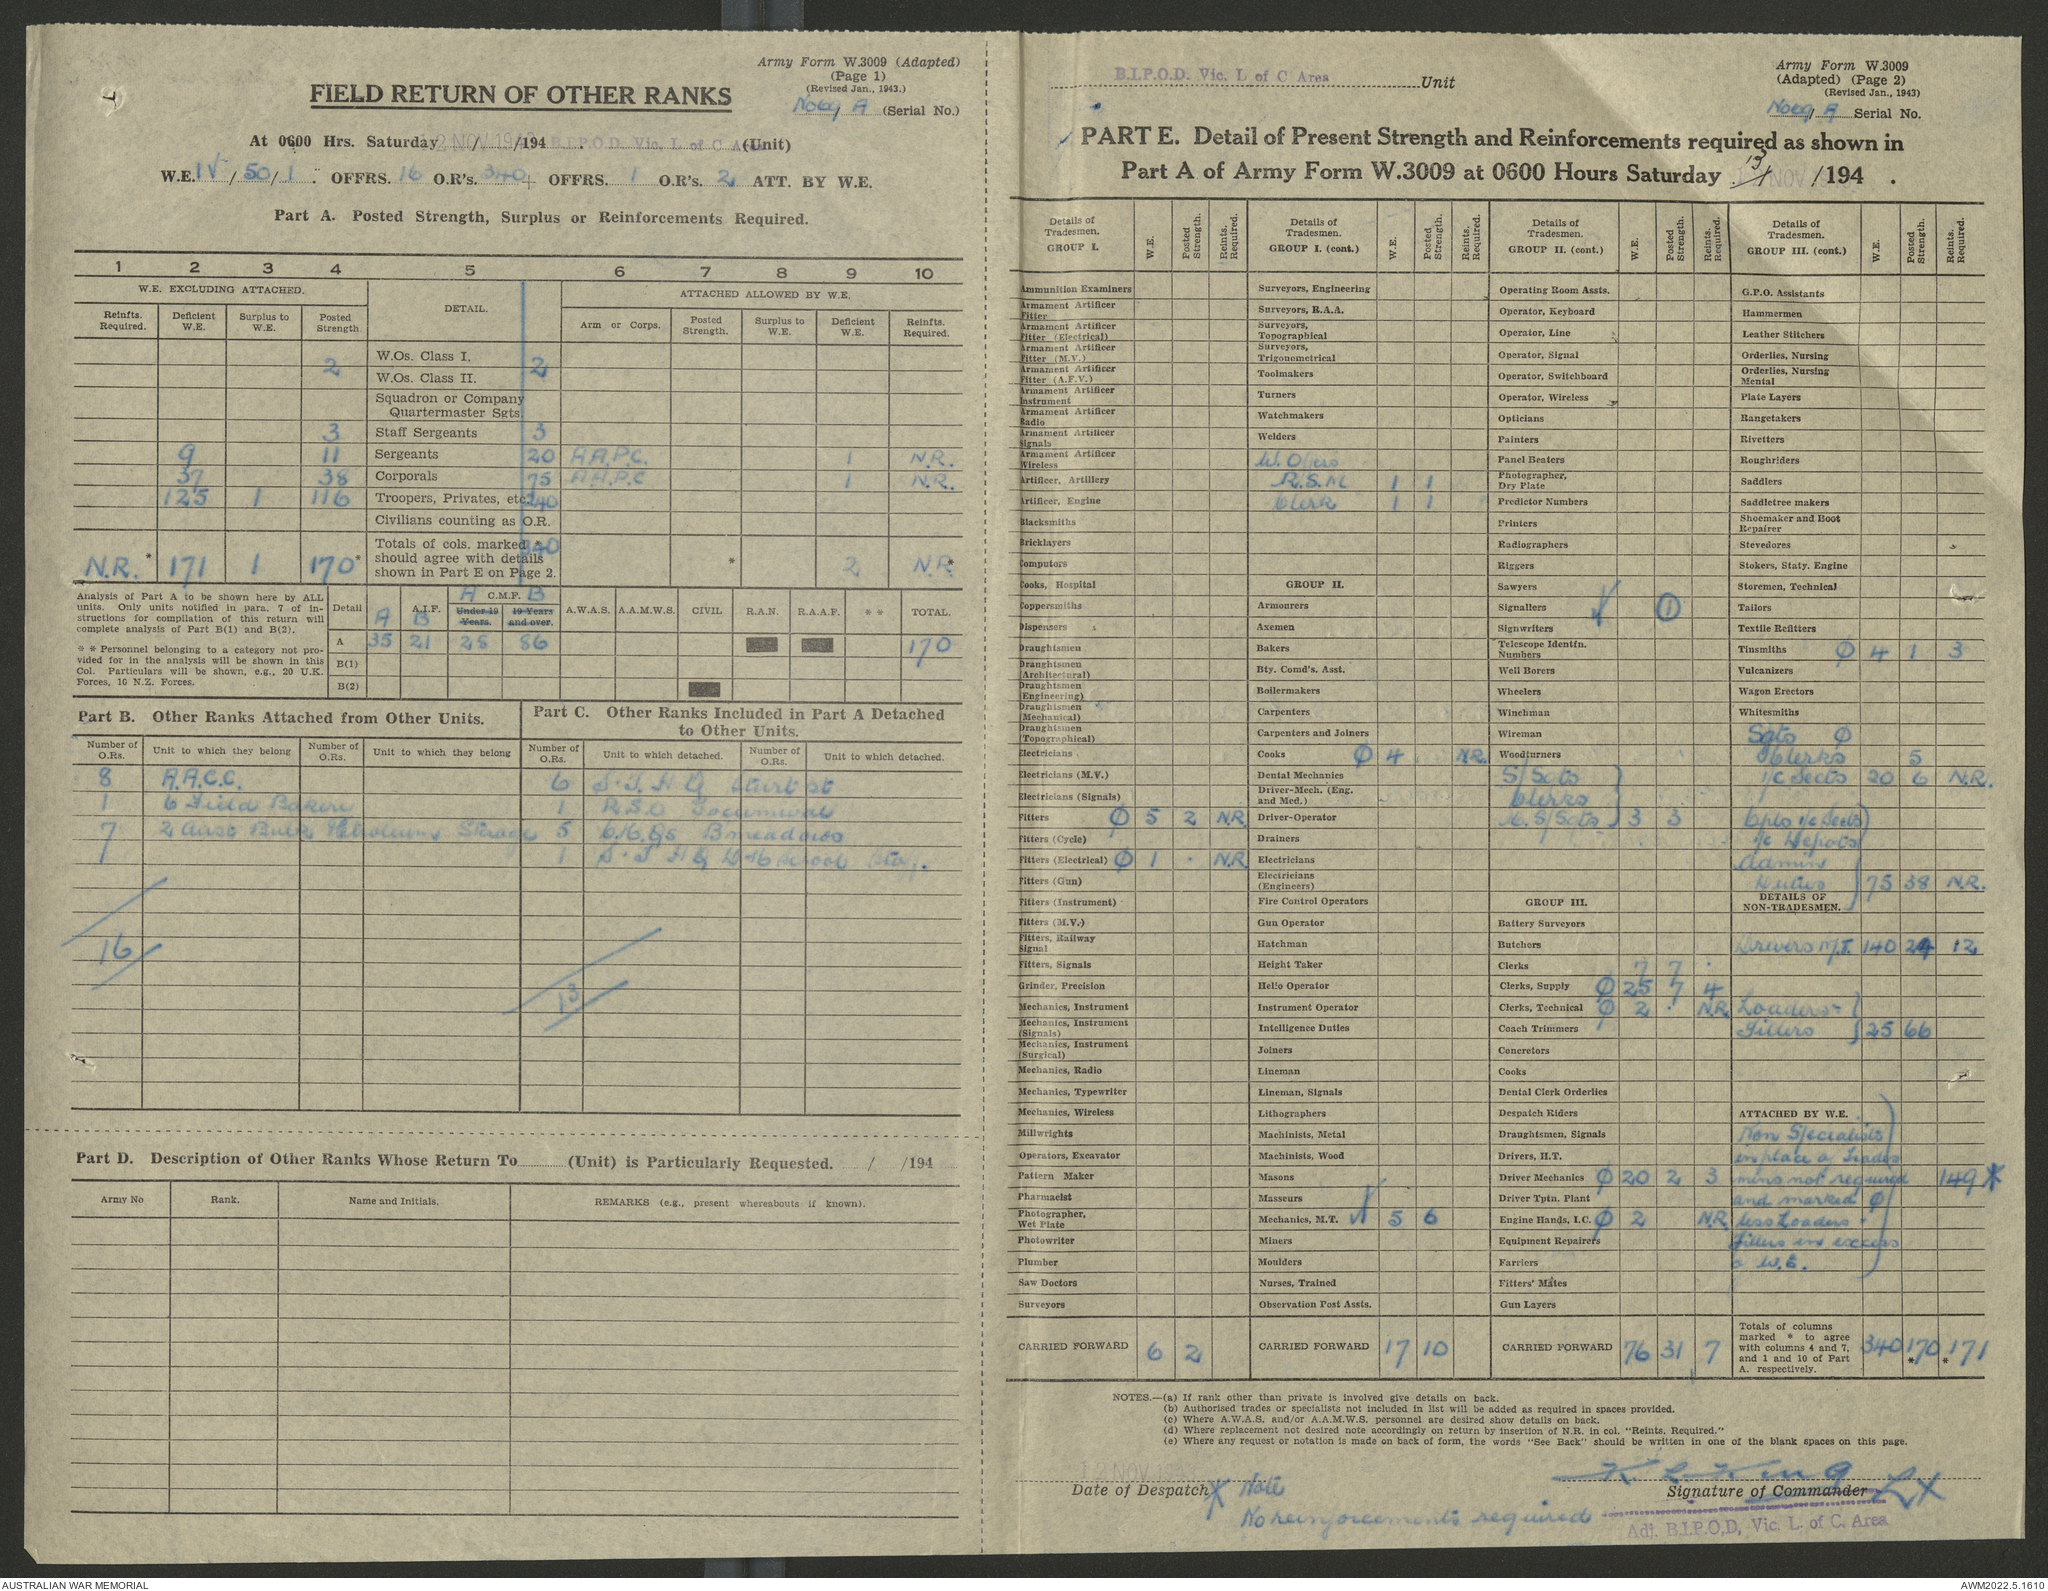 Army Form W.3009 (Adapted)
(Page 1)
(Revised Jan., 1943.)
FIELD RETURN OF OTHER RANKS
(Serial No.)
At 0600 Hrs. Saturday 12 NOV 194 B.I.P.O.D. Vic. L of C Area (Unit)
W.E. IV / 50 / 1 . OFFRS. 16 O.R's. 340 + OFFRS. 1 O.R's. 2 ATT. BY W.E.
Part A. Posted Strength, Surplus or Reinforcements Required.
1 2 3 4 5 6 7 8 9 10
W.E. EXCLUDING ATTACHED. DETAIL. ATTACHED ALLOWED BY W.E.
Reinfts. Required. Deficient W.E. Surplus to W.E. Posted Strength. Arm or Corps. Posted Strength. Surplus to W.E. Deficient W.E. Reinfts. Required.
W.Os. Class I.
2 2
W.Os. Class II.
Squadron or Company
Quartermaster Sgts.
3 Staff Sergeants 3
9 11 Sergeants 20 A.A.P.C. 1 N.R.
37 38 Corporals 75 A.A.P.C 1 N.R.
125 1 116 Troopers, Privates, etc. 240
Civilians counting as O.R.
Totals of cols. marked * 340
should agree with details
shown in Part E on Page 2.
N.R. * 171 1 170 * * 2 N.R. *
Analysis of Part A to be shown here by ALL
units. Only units notified in para. 7 of in-
structions for compilation of this return will
complete analysis of Part B(1) and B(2).
* * Personnel belonging to a category not pro-
vided for in the analysis will be shown in this
Col. Particulars will be shown, e.g., 20 U.K.
Forces, 10 N.Z. Forces.
Detail A.I.F. A B C.M.F. A B Under 19 Years. 19 Years and over. A.W.A.S. A.A.M.W.S. CIVIL R.A.N. R.A.A.F. * * TOTAL.
A 35 21 28 86 170
B(1)
B(2)
Part B. Other Ranks Attached from Other Units.
Number of O.Rs. Unit to which they belong Number of O.Rs. Unit to which they belong
8 A.A.C.C.
1 6 Field Bakery
7 2 Aust Bulk Petroleum Storage
16
Part C. Other Ranks Included in Part A Detached
to Other Units.
Number of O.Rs. Unit to which detached. Number of O.Rs. Unit to which detached.
6
1 R.S.O Tocumwal
5 Bmeadows
1
13
Part D. Description of Other Ranks Whose Return To ......... (Unit) is Particularly Requested. / /194
Army No Rank. Name and Initials. REMARKS (e.g., present whereabouts if known).
B.I.P.O.D. Vic. L of C Area Unit
Army Form W.3009
(Adapted) (Page 2)
(Revised Jan., 1943)
Serial No.
PART E. Detail of Present Strength and Reinforcements required as shown in
Part A of Army Form W.3009 at 0600 Hours Saturday 13 NOV /194 .
Details of Tradesmen. GROUP I. W.E. Posted Strength. Reints. Required.
Ammunition Examiners
Armament Artificer Fitter
Armament Artificer Fitter (Electrical)
Armament Artificer Fitter (M.V.)
Armament Artificer Fitter (A.F.V.)
Armament Artificer Instrument
Armament Artificer Radio
Armament Artificer Signals
Armament Artificer Wireless
Artificer, Artillery
Artificer, Engine
Blacksmiths
Bricklayers
Computors
Cooks, Hospital
Coppersmiths
Dispensers
Draughtsmen
Draughtsmen (Architectural)
Draughtsmen (Engineering)
Draughtsmen (Mechanical)
Draughtsmen (Topographical)
Electricians
Electricians (M.V.)
Electricians (Signals)
Fitters Ø 5 2 N.R.
Fitters (Cycle)
Fitters (Electrical) Ø 1 . N.R.
Fitters (Gun)
Fitters (Instrument)
Fitters (M.V.)
Fitters, Railway Signal
Fitters, Signals
Grinder, Precision
Mechanics, Instrument
Mechanics, Instrument (Signals)
Mechanics, Instrument (Surgical)
Mechanics, Radio
Mechanics, Typewriter
Mechanics, Wireless
Millwrights
Operators, Excavator
Pattern Maker
Pharmacist
Photographer, Wet Plate
Photowriter
Plumber
Saw Doctors
Surveyors
CARRIED FORWARD 6 2
Details of Tradesmen. GROUP I. (cont.) W.E. Posted Strength. Reints. Required.
Surveyors, Engineering
Surveyors, R.A.A.
Surveyors, Topographical
Surveyors, Trigonometrical
Toolmakers
Turners
Watchmakers
Welders
R.S.M 1 1
Clerk 1 1
GROUP II.
Armourers
Axemen
Bakers
Bty. Comd's. Asst.
Boilermakers
Carpenters
Carpenters and Joiners
Cooks Ø 4 N.R.
Dental Mechanics
Driver-Mech. (Eng. and Med.)
Driver-Operator
Drainers
Electricians
Electricians (Engineers)
Fire Control Operators
Gun Operator
Hatchman
Height Taker
Helio Operator
Instrument Operator
Intelligence Duties
Joiners
Lineman
Lineman, Signals
Lithographers
Machinists, Metal
Machinists, Wood
Masons
Masseurs
Mechanics, M.T. 5 6
Miners
Moulders
Nurses, Trained
Observation Post Assts.
CARRIED FORWARD 17 10
Details of Tradesmen. GROUP II. (cont.) W.E. Posted Strength. Reints. Required.
Operating Room Assts.
Operator, Keyboard
Operator, Line
Operator, Signal
Operator, Switchboard
Operator, Wireless
Opticians
Painters
Panel Beaters
Photographer, Dry Plate
Predictor Numbers
Printers
Radiographers
Riggers
Sawyers
Signallers 1
Signwriters
Telescope Identfn. Numbers
Well Borers
Wheelers
Winchman
Wireman
Woodturners
S/Sgts
Clerks
S/Sgts 3 3
GROUP III.
Battery Surveyors
Butchers
Clerks 7 7 .
Clerks, Supply Ø 25 7 4
Clerks, Technical Ø 2 . N.R.
Coach Trimmers
Concretors
Cooks
Dental Clerk Orderlies
Despatch Riders
Draughtsmen, Signals
Drivers, H.T.
Driver Mechanics Ø 20 2 3
Driver Tptn. Plant
Engine Hands, I.C. Ø 2 N.R.
Equipment Repairers
Farriers
Fitters' Mates
Gun Layers
CARRIED FORWARD 76 31 7
Details of Tradesmen. GROUP III. (cont.) W.E. Posted Strength. Reints. Required.
G.P.O. Assistants
Hammermen
Leather Stitchers
Orderlies, Nursing
Orderlies, Nursing Mental
Plate Layers
Rangetakers
Rivetters
Roughriders
Saddlers
Saddletree makers
Shoemaker and Boot Repairer
Stevedores
Stokers, Staty. Engine
Storemen, Technical
Tailors
Textile Refitters
Tinsmiths Ø 4 1 3
Vulcanizers
Wagon Erectors
Whitesmiths
Sgts Ø
Clerks 5
i/c Sects 20 6 N.R.
Cpls i/c Sects
i/c Depots
Admin
Duties 75 38 N.R.
DETAILS OF
NON-TRADESMEN.
Drivers M.T. 140 24 12
Loaders -
Fillers 25 66
ATTACHED BY W.E.
Non Specialists
in place of trades
mens not required 149 *
and marked Ø
less Loaders -
Fillers in excess
of W.E.
Totals of columns
marked * to agree
with columns 4 and 7,
and 1 and 10 of Part
A. respectively.
340 170 * 171 *
NOTES.—(a) If rank other than private is involved give details on back.
(b) Authorised trades or specialists not included in list will be added as required in spaces provided.
(c) Where A.W.A.S. and/or A.A.M.W.S. personnel are desired show details on back.
(d) Where replacement not desired note accordingly on return by insertion of N.R. in col. "Reints. Required."
(e) Where any request or notation is made on back of form, the words "See Back" should be written in one of the blank spaces on this page.
Date of Despatch
* Note
No reinforcements required
K L King Lt
Signature of Commander
Adj. B.I.P.O.D, Vic. L. of C. Area
AUSTRALIAN WAR MEMORIAL
AWM2022.5.1610